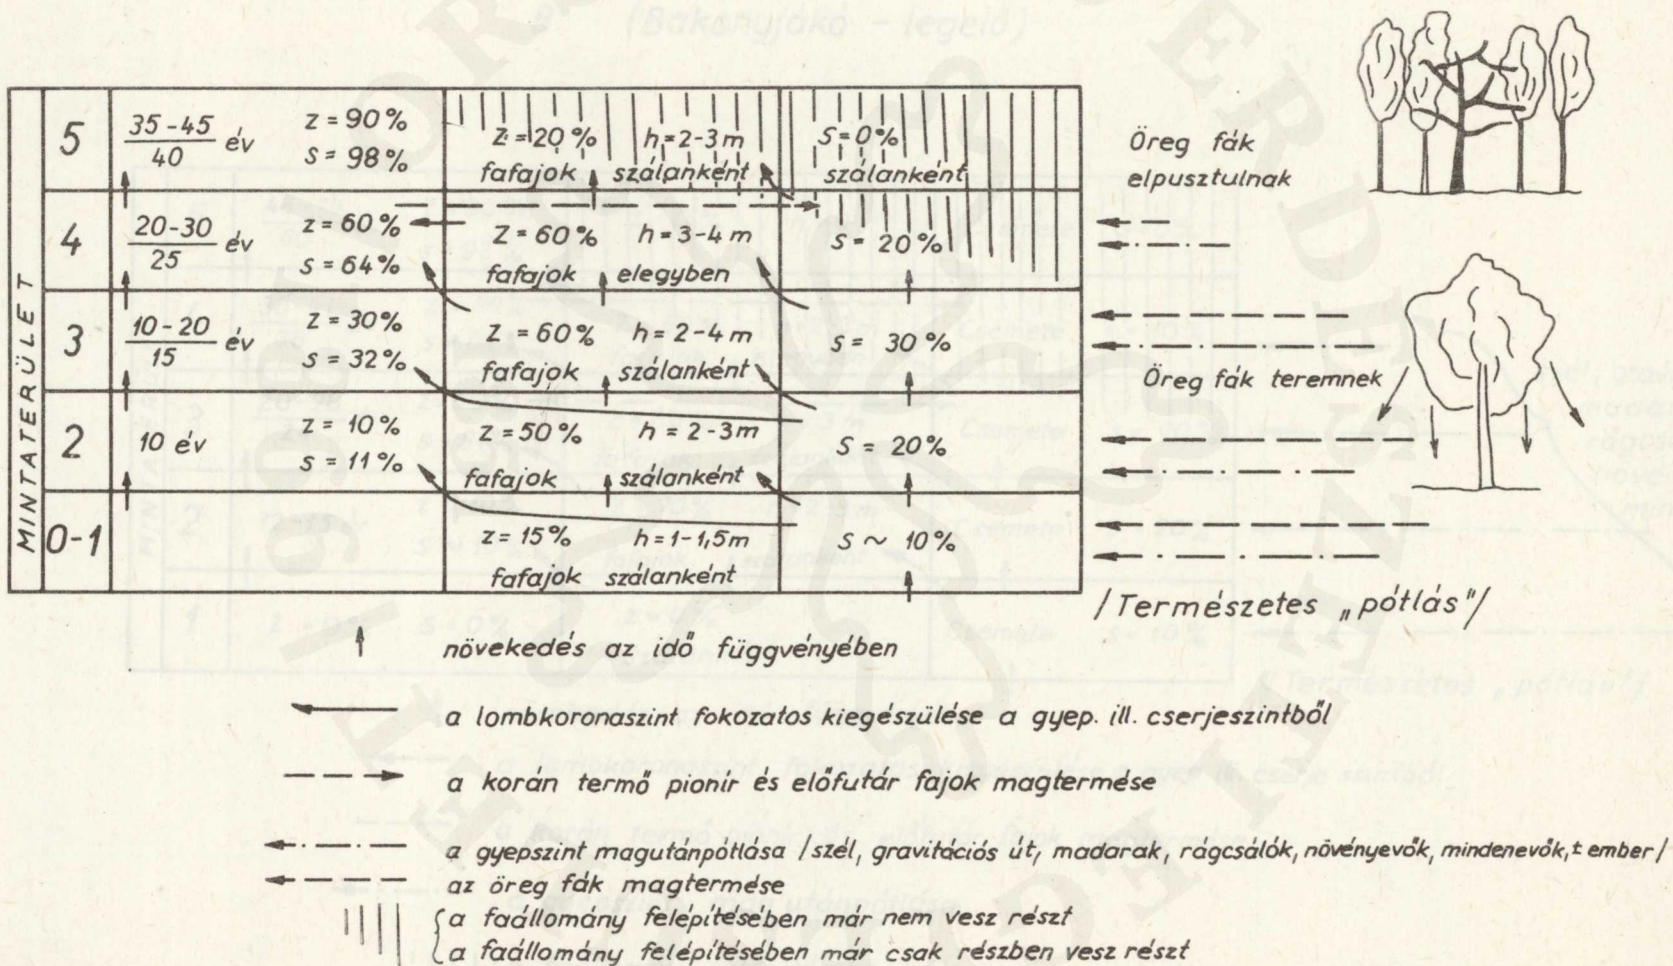 MINTATERÜLET
5
35-45 / 40 év
z = 90%
s = 98%
z = 20% h = 2-3 m
fafajok szálanként
s = 0%
szálanként
Öreg fák
elpusztulnak
4
20-30 / 25 év
z = 60%
s = 64%
z = 60% h = 3-4 m
fafajok elegyben
s = 20%
3
10-20 / 15 év
z = 30%
s = 32%
z = 60% h = 2-4 m
fafajok szálanként
s = 30%
Öreg fák teremnek
2
10 év
z = 10%
s = 11%
z = 50% h = 2-3m
fafajok szálanként
s = 20%
0-1
z = 15% h = 1-1,5m
fafajok szálanként
s ~ 10%
/Természetes „pótlás"/
növekedés az idő függvényében
a lombkoronaszint fokozatos kiegészülése a gyep. ill. cserjeszintből
a korán termő pionír és előfutár fajok magtermése
a gyepszint magutánpótlása /szél, gravitációs út, madarak, rágcsálók, növényevők, mindenevők, ± ember/
az öreg fák magtermése
a faállomány felépítésében már nem vesz részt
a faállomány felépítésében már csak részben vesz részt
(Bakonyjákó - legelő)